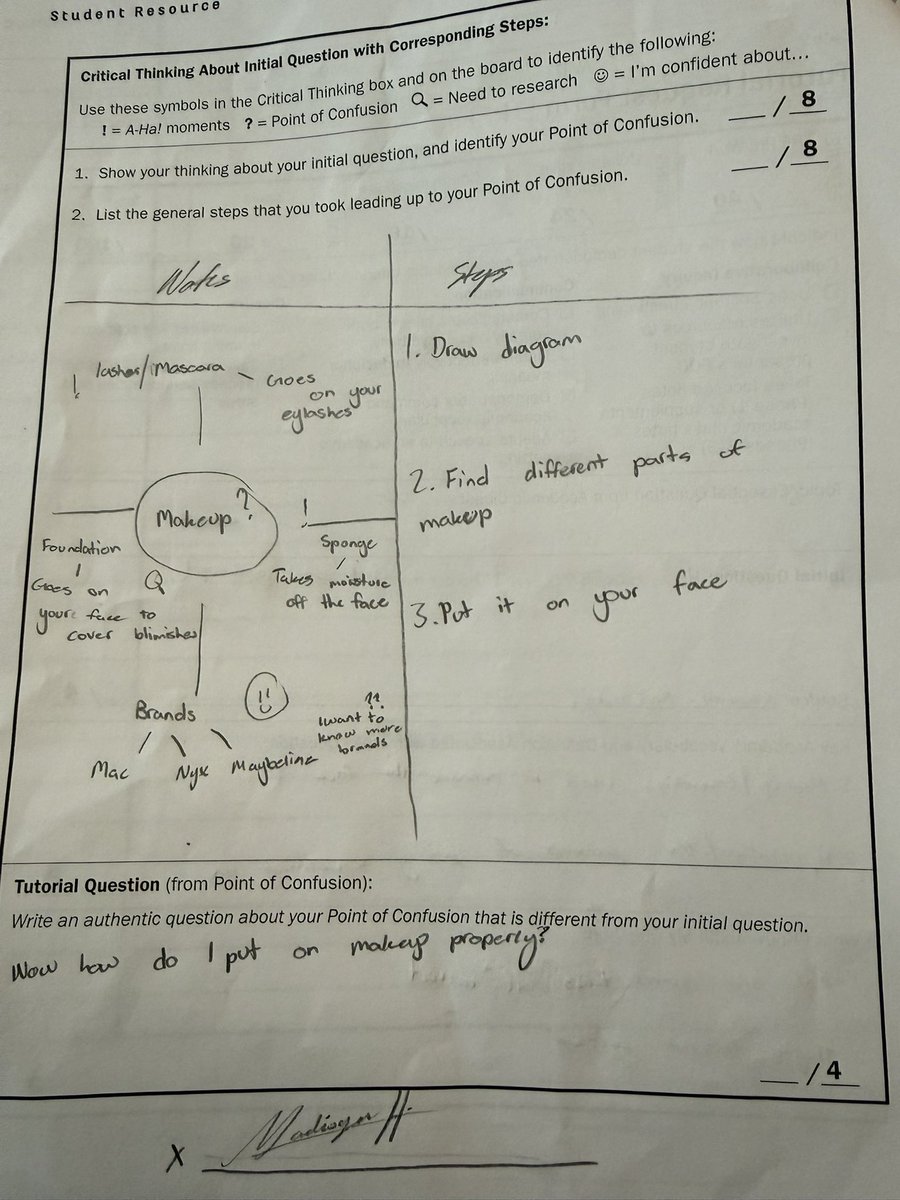 Student Resource
Critical Thinking About Initial Question with Corresponding Steps:
Use these symbols in the Critical Thinking box and on the board to identify the following:
! = A-Ha! moments ? = Point of Confusion = Need to research ☺ = I'm confident about...
1. Show your thinking about your initial question, and identify your Point of Confusion.
/ 8
2. List the general steps that you took leading up to your Point of Confusion.
/ 8
Notes
! lashes/Mascara
Goes
on your
eylashes
Makeup ?
Foundation
Goes on
youre face to
cover blimishes
!
Sponge
Takes moisture
off the face
Brands
Mac
Nyx
Maybeline
??
I want to
know more
brands
Steps
1. Draw diagram
2. Find different parts of
makeup
3. Put it on your face
Tutorial Question (from Point of Confusion):
Write an authentic question about your Point of Confusion that is different from your initial question.
Wow how do I put on makeup properly?
/ 4
X H.